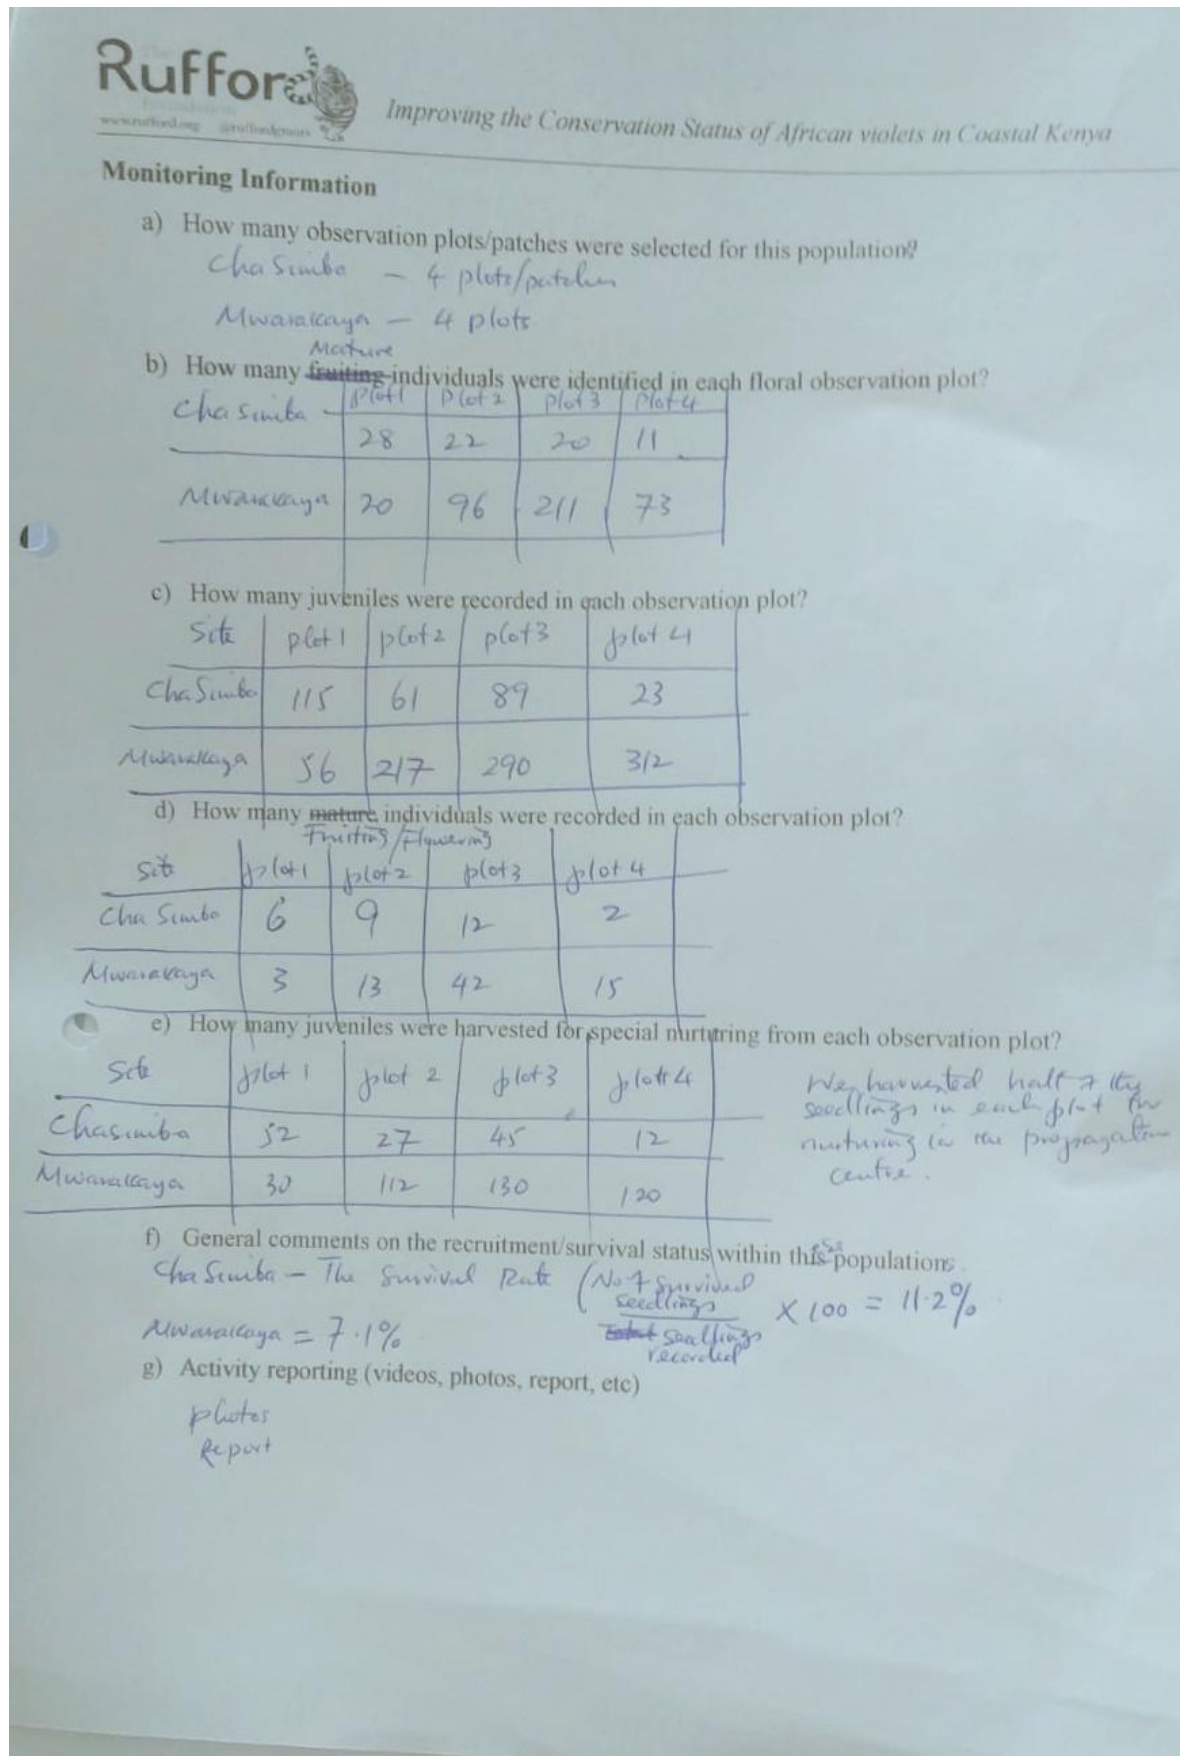 The
Rufford
Foundation
www.rufford.org @ruffordgrants
Improving the Conservation Status of African violets in Coastal Kenya
Monitoring Information
a) How many observation plots/patches were selected for this population?
Cha Simba - 4 plots/patches
Mwarakaya - 4 plots
Mature
b) How many fruiting individuals were identified in each floral observation plot?
Cha Simba - plot 1 plot 2 plot 3 plot 4
28 22 20 11
Mwarakaya 20 96 211 73
c) How many juveniles were recorded in each observation plot?
Site plot 1 plot 2 plot 3 plot 4
Cha Simba 115 61 89 23
Mwarakaya 56 217 290 312
d) How many mature individuals were recorded in each observation plot?
Fruiting/Flowering
Site plot 1 plot 2 plot 3 plot 4
Cha Simba 6 9 12 2
Mwarakaya 3 13 42 15
e) How many juveniles were harvested for special nurturing from each observation plot?
Site plot 1 plot 2 plot 3 plot 4
Chasimba 52 27 45 12
Mwarakaya 30 112 130 120
We harvested half of the
seedlings in each plot for
nurturing in the propagation
centre.
f) General comments on the recruitment/survival status within this population
Cha Simba - The Survival Rate (No of survived
seedlings
seedlings
recorded
X 100 = 11.2%
Mwarakaya = 7.1%
g) Activity reporting (videos, photos, report, etc)
photos
Report